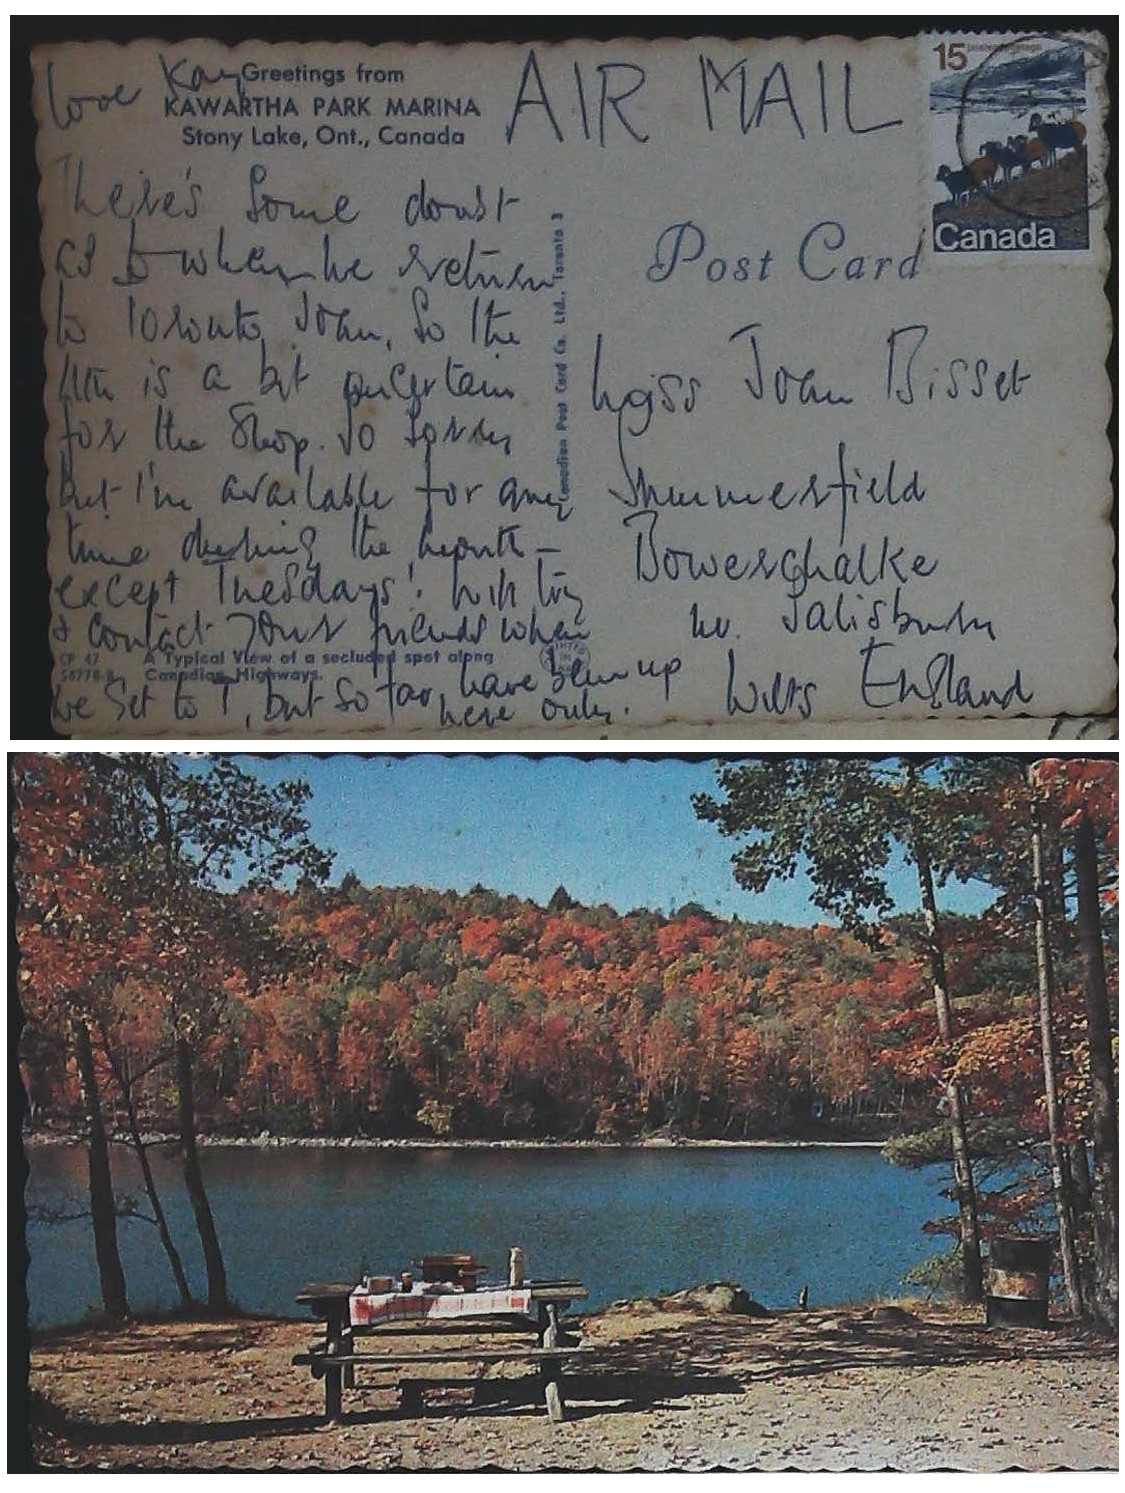 love Kay
Greetings from
KAWARTHA PARK MARINA
Stony Lake, Ont., Canada
There's some doubt
as to when we return
to Toronto, Joan, so the
11th is a bit uncertain
for the shop. So sorry
but I'm available for any
time during the month -
except Tuesdays! Will try
& contact your friends when
we get to T, but so far, have been up
here only.
CP 47
A Typical View of a secluded spot along
Canadian Highways.
Canadian Post Card Co. Ltd., Toronto 3
AIR MAIL
15
Canada
Post Card
Miss Joan Bisset
Summerfield
Bowerchalke
nr. Salisbury
Wilts England